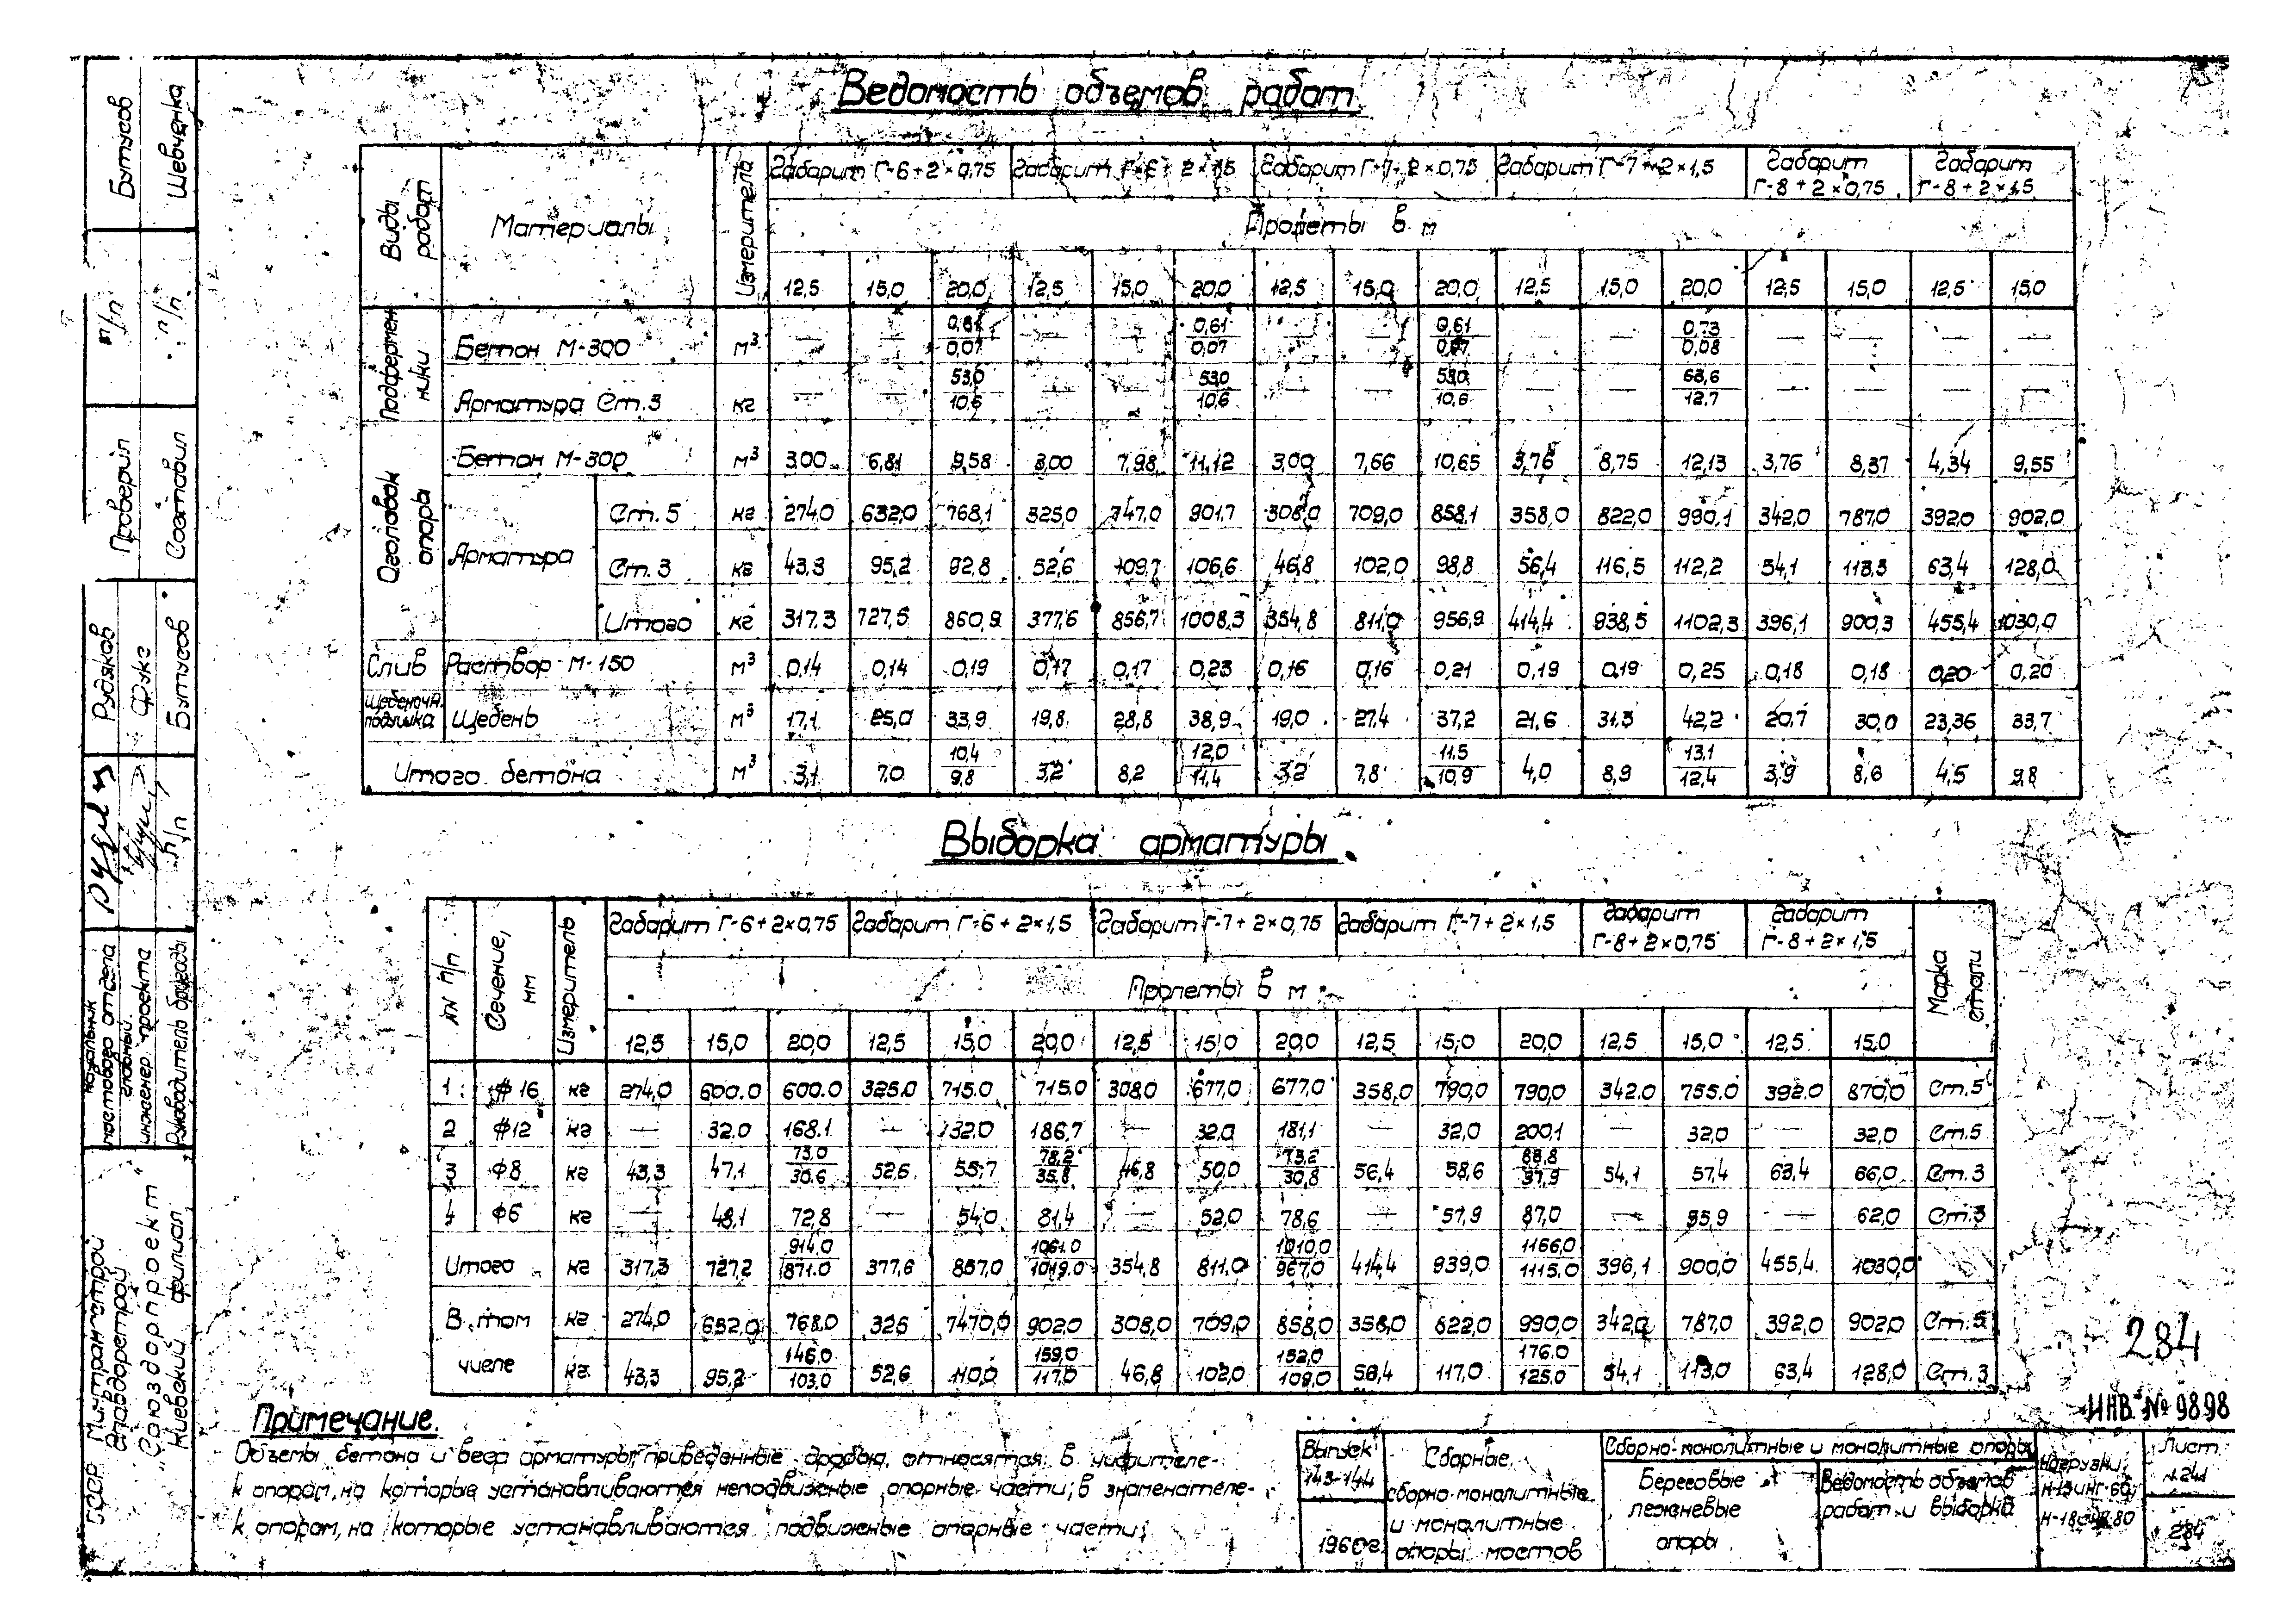 Ведомость объемов работ
Виды работ | Материалы | Измеритель | Габарит Г-6+2×0,75 | Габарит Г-6+2×1,5 | Габарит Г-7+2×0,75 | Габарит Г-7+2×1,5 | Габарит Г-8+2×0,75 | Габарит Г-8+2×1,5
Пролеты в м
12,5 15,0 20,0 12,5 15,0 20,0 12,5 15,0 20,0 12,5 15,0 20,0 12,5 15,0 12,5 15,0
Подферменники | Бетон М-300 м³ — — 0,61/0,07 — — 0,61/0,07 — — 0,61/0,07 — — 0,73/0,08 — — — —
Арматура Ст.3 кг — — 53,0/10,6 — — 53,0/10,6 — — 53,0/10,6 — — 63,6/12,7 — — — —
Оголовок опоры | Бетон М-300 м³ 3,00 6,81 9,58 3,00 7,98 11,12 3,00 7,66 10,65 3,76 8,75 12,13 3,76 8,37 4,34 9,55
Арматура | Ст.5 кг 274,0 632,0 768,1 325,0 747,0 901,7 308,0 709,0 858,1 358,0 822,0 990,1 342,0 787,0 392,0 902,0
Ст.3 кг 43,3 95,2 92,8 52,6 109,7 106,6 46,8 102,0 98,8 56,4 116,5 112,2 54,1 113,3 63,4 128,0
Итого кг 317,3 727,5 860,9 377,6 856,7 1008,3 354,8 811,0 956,9 414,4 938,5 1102,3 396,1 900,3 455,4 1030,0
Слив | Раствор М-150 м³ 0,14 0,14 0,19 0,17 0,17 0,23 0,16 0,16 0,21 0,19 0,19 0,25 0,18 0,18 0,20 0,20
Щебеночн. подушка | Щебень м³ 17,1 25,0 33,9 19,8 28,8 38,9 19,0 27,4 37,2 21,6 31,3 42,2 20,7 30,0 23,36 33,7
Итого бетона м³ 3,1 7,0 10,4/9,8 3,2 8,2 12,0/11,4 3,2 7,8 11,5/10,9 4,0 8,9 13,1/12,4 3,9 8,6 4,5 9,8
Выборка арматуры
№№ п/п | Сечение, мм | Измеритель | Габарит Г-6+2×0,75 | Габарит Г-6+2×1,5 | Габарит Г-7+2×0,75 | Габарит Г-7+2×1,5 | Габарит Г-8+2×0,75 | Габарит Г-8+2×1,5 | Марка стали
Пролеты в м
12,5 15,0 20,0 12,5 15,0 20,0 12,5 15,0 20,0 12,5 15,0 20,0 12,5 15,0 12,5 15,0
1 ф16 кг 274,0 600.0 600.0 325.0 715.0 715.0 308,0 677,0 677,0 358,0 790,0 790,0 342.0 755.0 392.0 870,0 Ст.5
2 ф12 кг — 32.0 168.1 — 32.0 186,7 — 32,0 181,1 — 32,0 200,1 — 32,0 — 32,0 Ст.5
3 ф8 кг 43,3 47,1 73.0/30,6 52,6 55,7 78,2/35,8 46,8 50,0 73,2/30,8 56,4 58,6 88,8/37,9 54,1 57,4 63,4 66,0 Ст.3
4 ф6 кг — 48,1 72,8 — 54,0 81,4 — 52,0 78,6 — 57,9 87,0 — 55,9 — 62,0 Ст.3
Итого кг 317,3 727,2 914.0/871.0 377,6 857,0 1061.0/1019.0 354,8 811.0 1010,0/967,0 414,4 939,0 1166,0/1115.0 396,1 900,0 455,4 1030,0
В том числе кг 274,0 632,0 768,0 325 7470,0 902,0 308,0 709,0 858,0 358,0 822,0 990,0 342,0 787,0 392,0 902,0 Ст.5
кг. 43,3 95,2 146,0/103,0 52,6 110,0 159,0/117,0 46,8 102,0 152,0/109,0 56,4 117,0 176.0/125.0 54,1 113,0 63,4 128,0 Ст.3
Примечание.
Объемы бетона и веса арматуры, приведенные дробью, относятся: в числителе-
к опорам, на которые устанавливаются неподвижные опорные части; в знаменателе-
к опорам, на которые устанавливаются подвижные опорные части.
284
ИНВ. № 9898
Выпуск 143-144
1960г.
Сборные,
сборно-монолитные
и монолитные
опоры мостов
Сборно-монолитные и монолитные опоры
Береговые
лежневые
опоры
Ведомость объемов
работ и выборка
Нагрузки:
Н-13 и НГ-60
Н-18 и НК-80
Лист
284
Бутусов
Шевченко
п/п
п/п
Проверил
Составил
Рудяков
Фукс
Бутусов
п/п
Начальник мостового отдела
Главный инженер проекта
Руководитель бригады
СССР Минтрансстрой
Главдорстрой
„Союздорпроект"
Киевский филиал